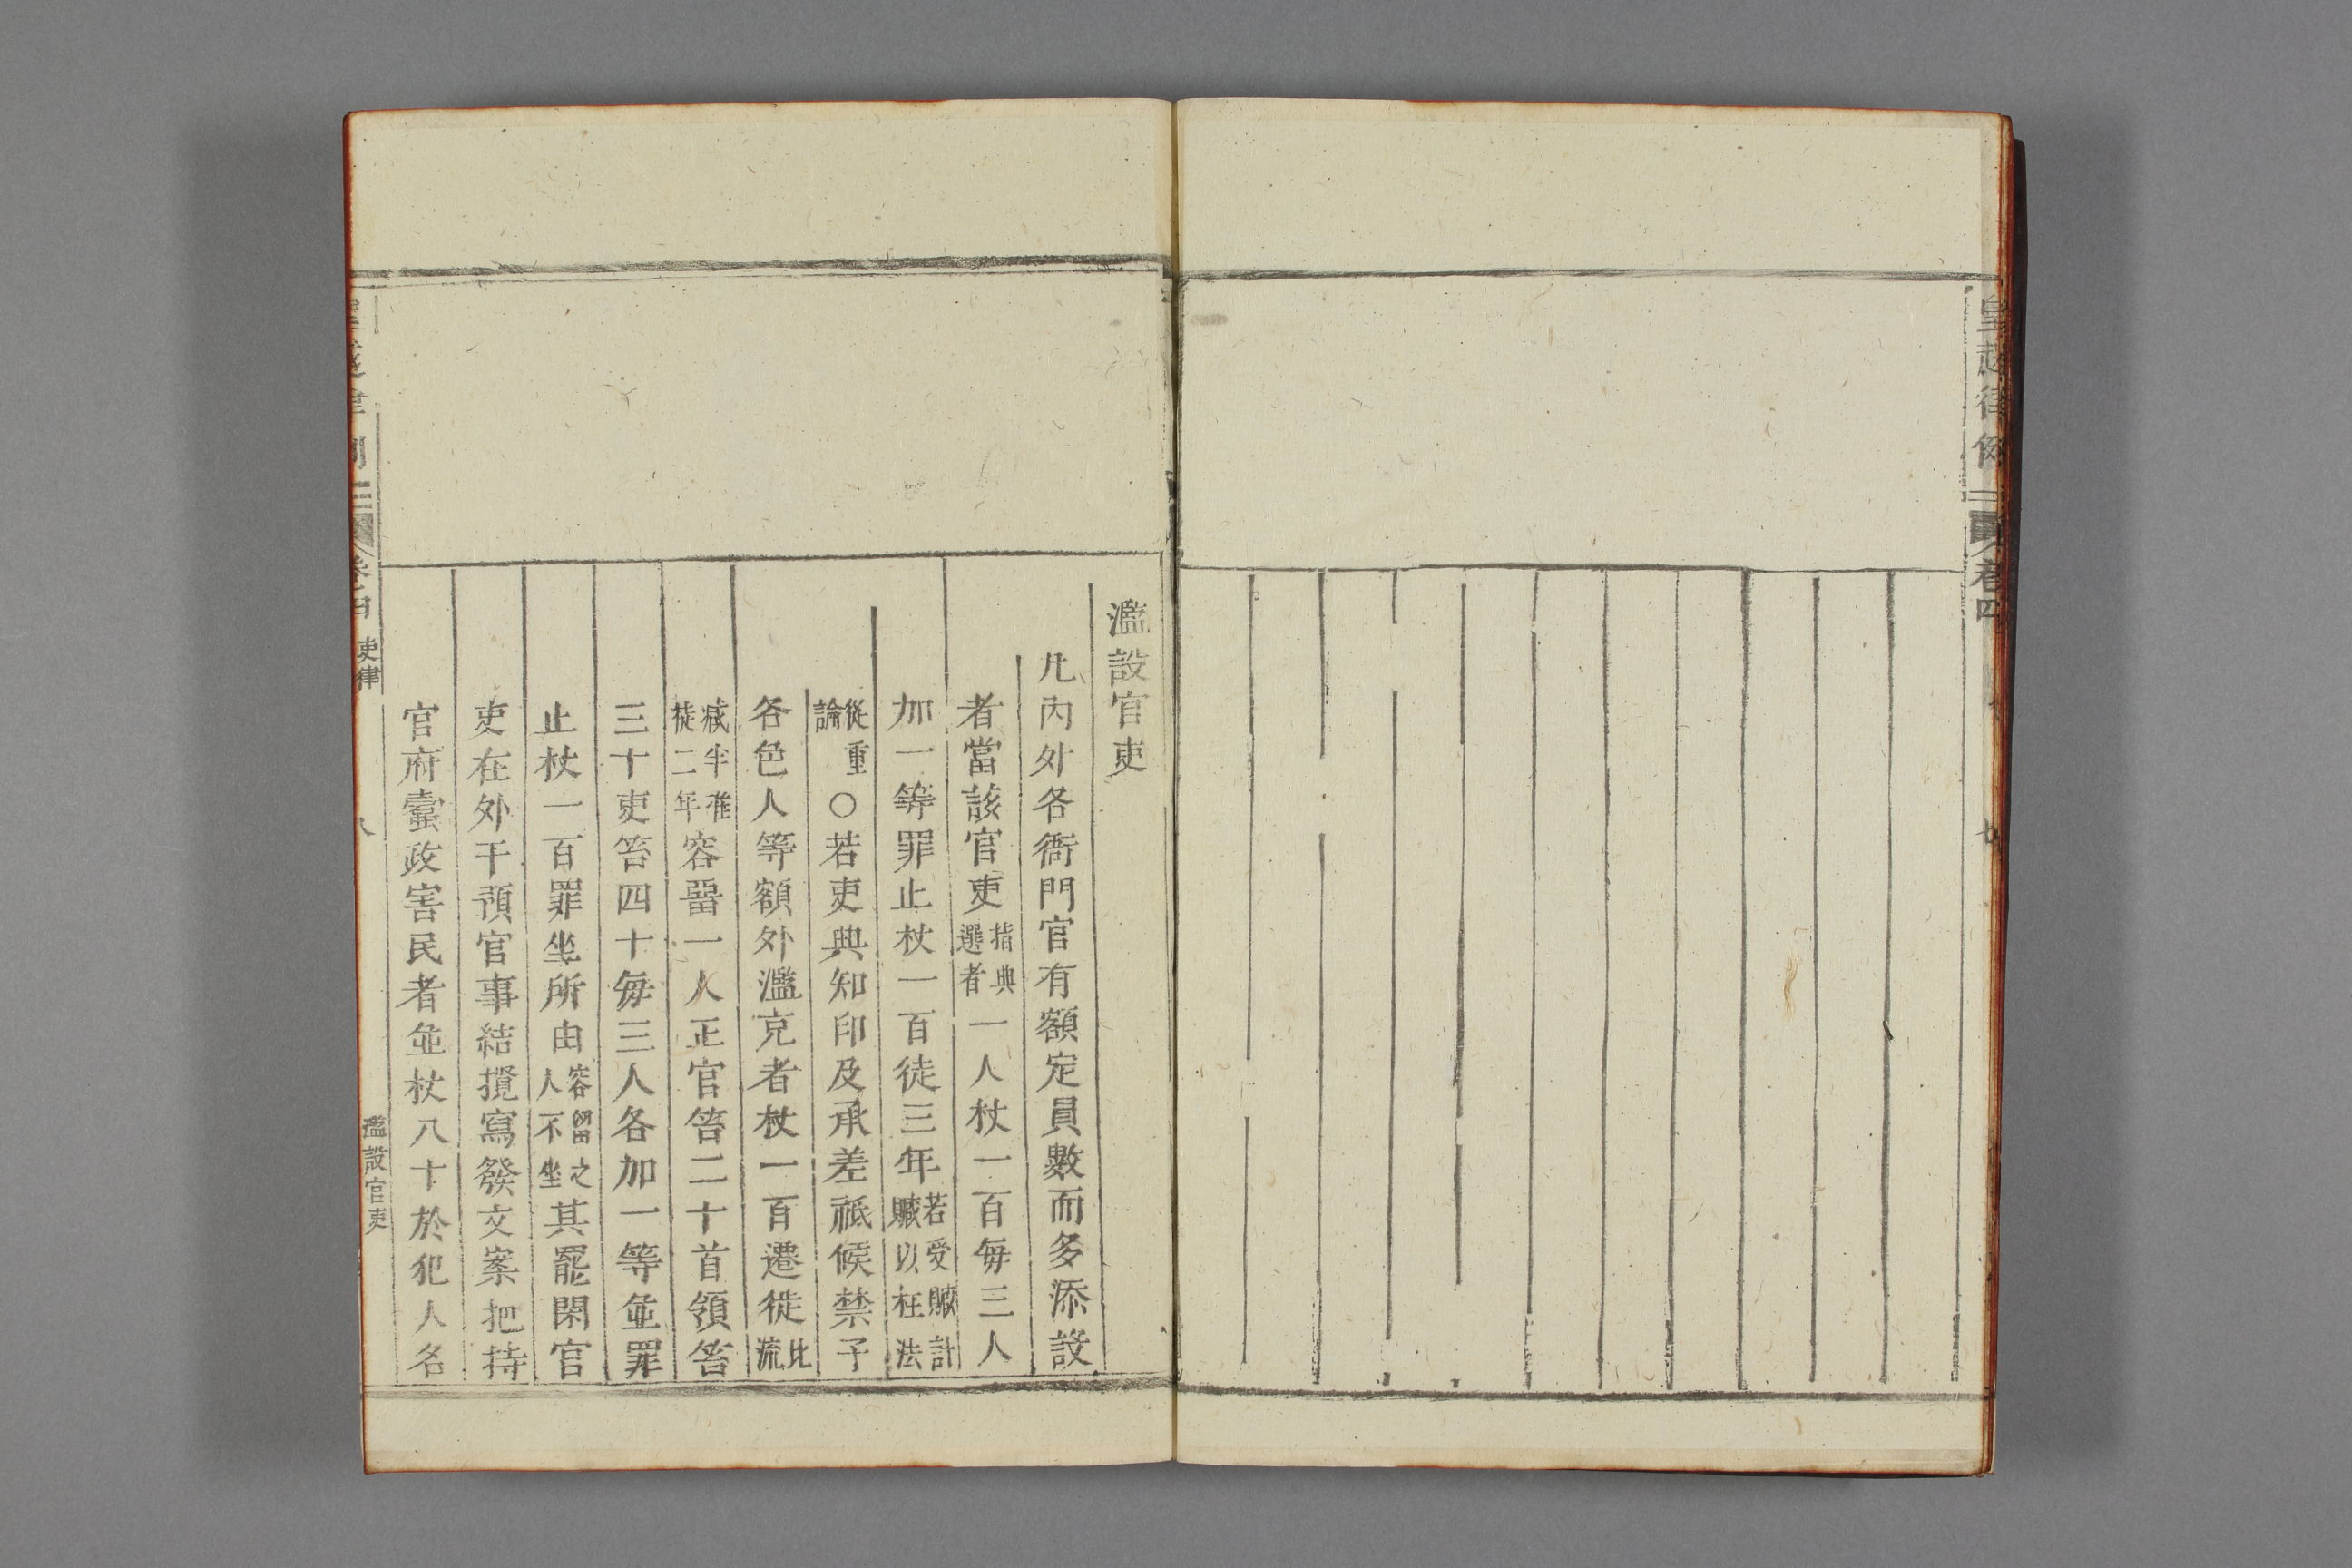 皇越律例二
卷四
七
濫設官吏
凢內外各衙門官有額定員數而多添設
者當該官吏指典選者一人杖一百每三人
加一等罪止杖一百徒三年若受贓計贓以枉法
從重論○若吏典知印及承差祗候禁子
各色人等額外濫充者杖一百遷徙比流
減半准徒二年容畱一人正官笞二十首領笞
三十吏笞四十每三人各加一等並罪
止杖一百罪坐所由容留之人不坐其罷閑官
吏在外干預官事結攬寫發文案把持
官府蠹政害民者並杖八十於犯人名
吏律
八
濫設官吏